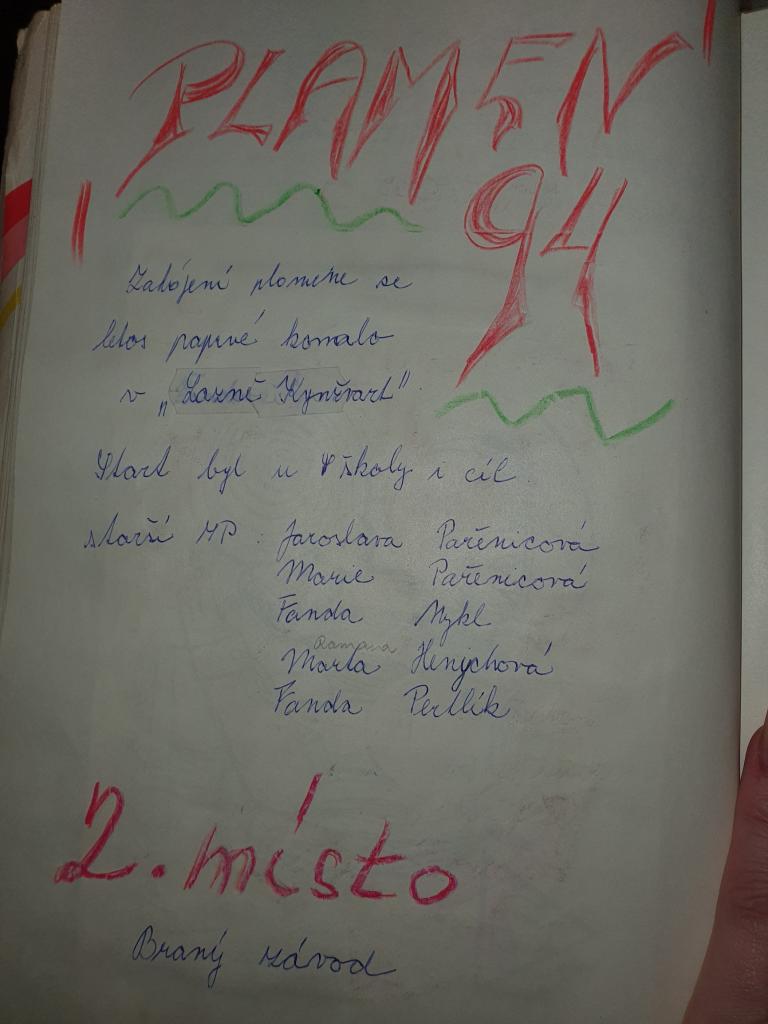 PLAMEN
94
Zahájení plamene se
letos poprvé konalo
v „Lazně Kynžvart"
Start byl u školy i cíl
starší MP: Jaroslava Pařenicová
Marie Pařenicová
Fanda Nykl
Romana
Marta Henychová
Fanda Pertlík
2. místo
Braný závod